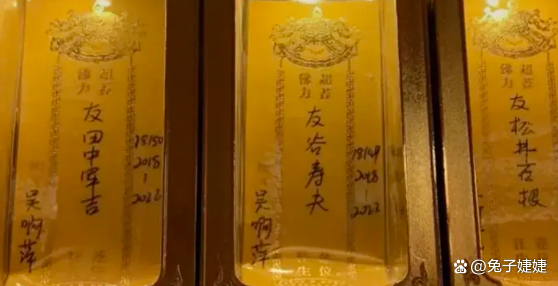 佛力
超荐
友田中军吉
18150
2018
-
2022
吴啊萍
佛力
超荐
友谷寿夫
18149
2018
-
2022
吴啊萍
佛力
超荐
友松井石根
@兔子婕婕